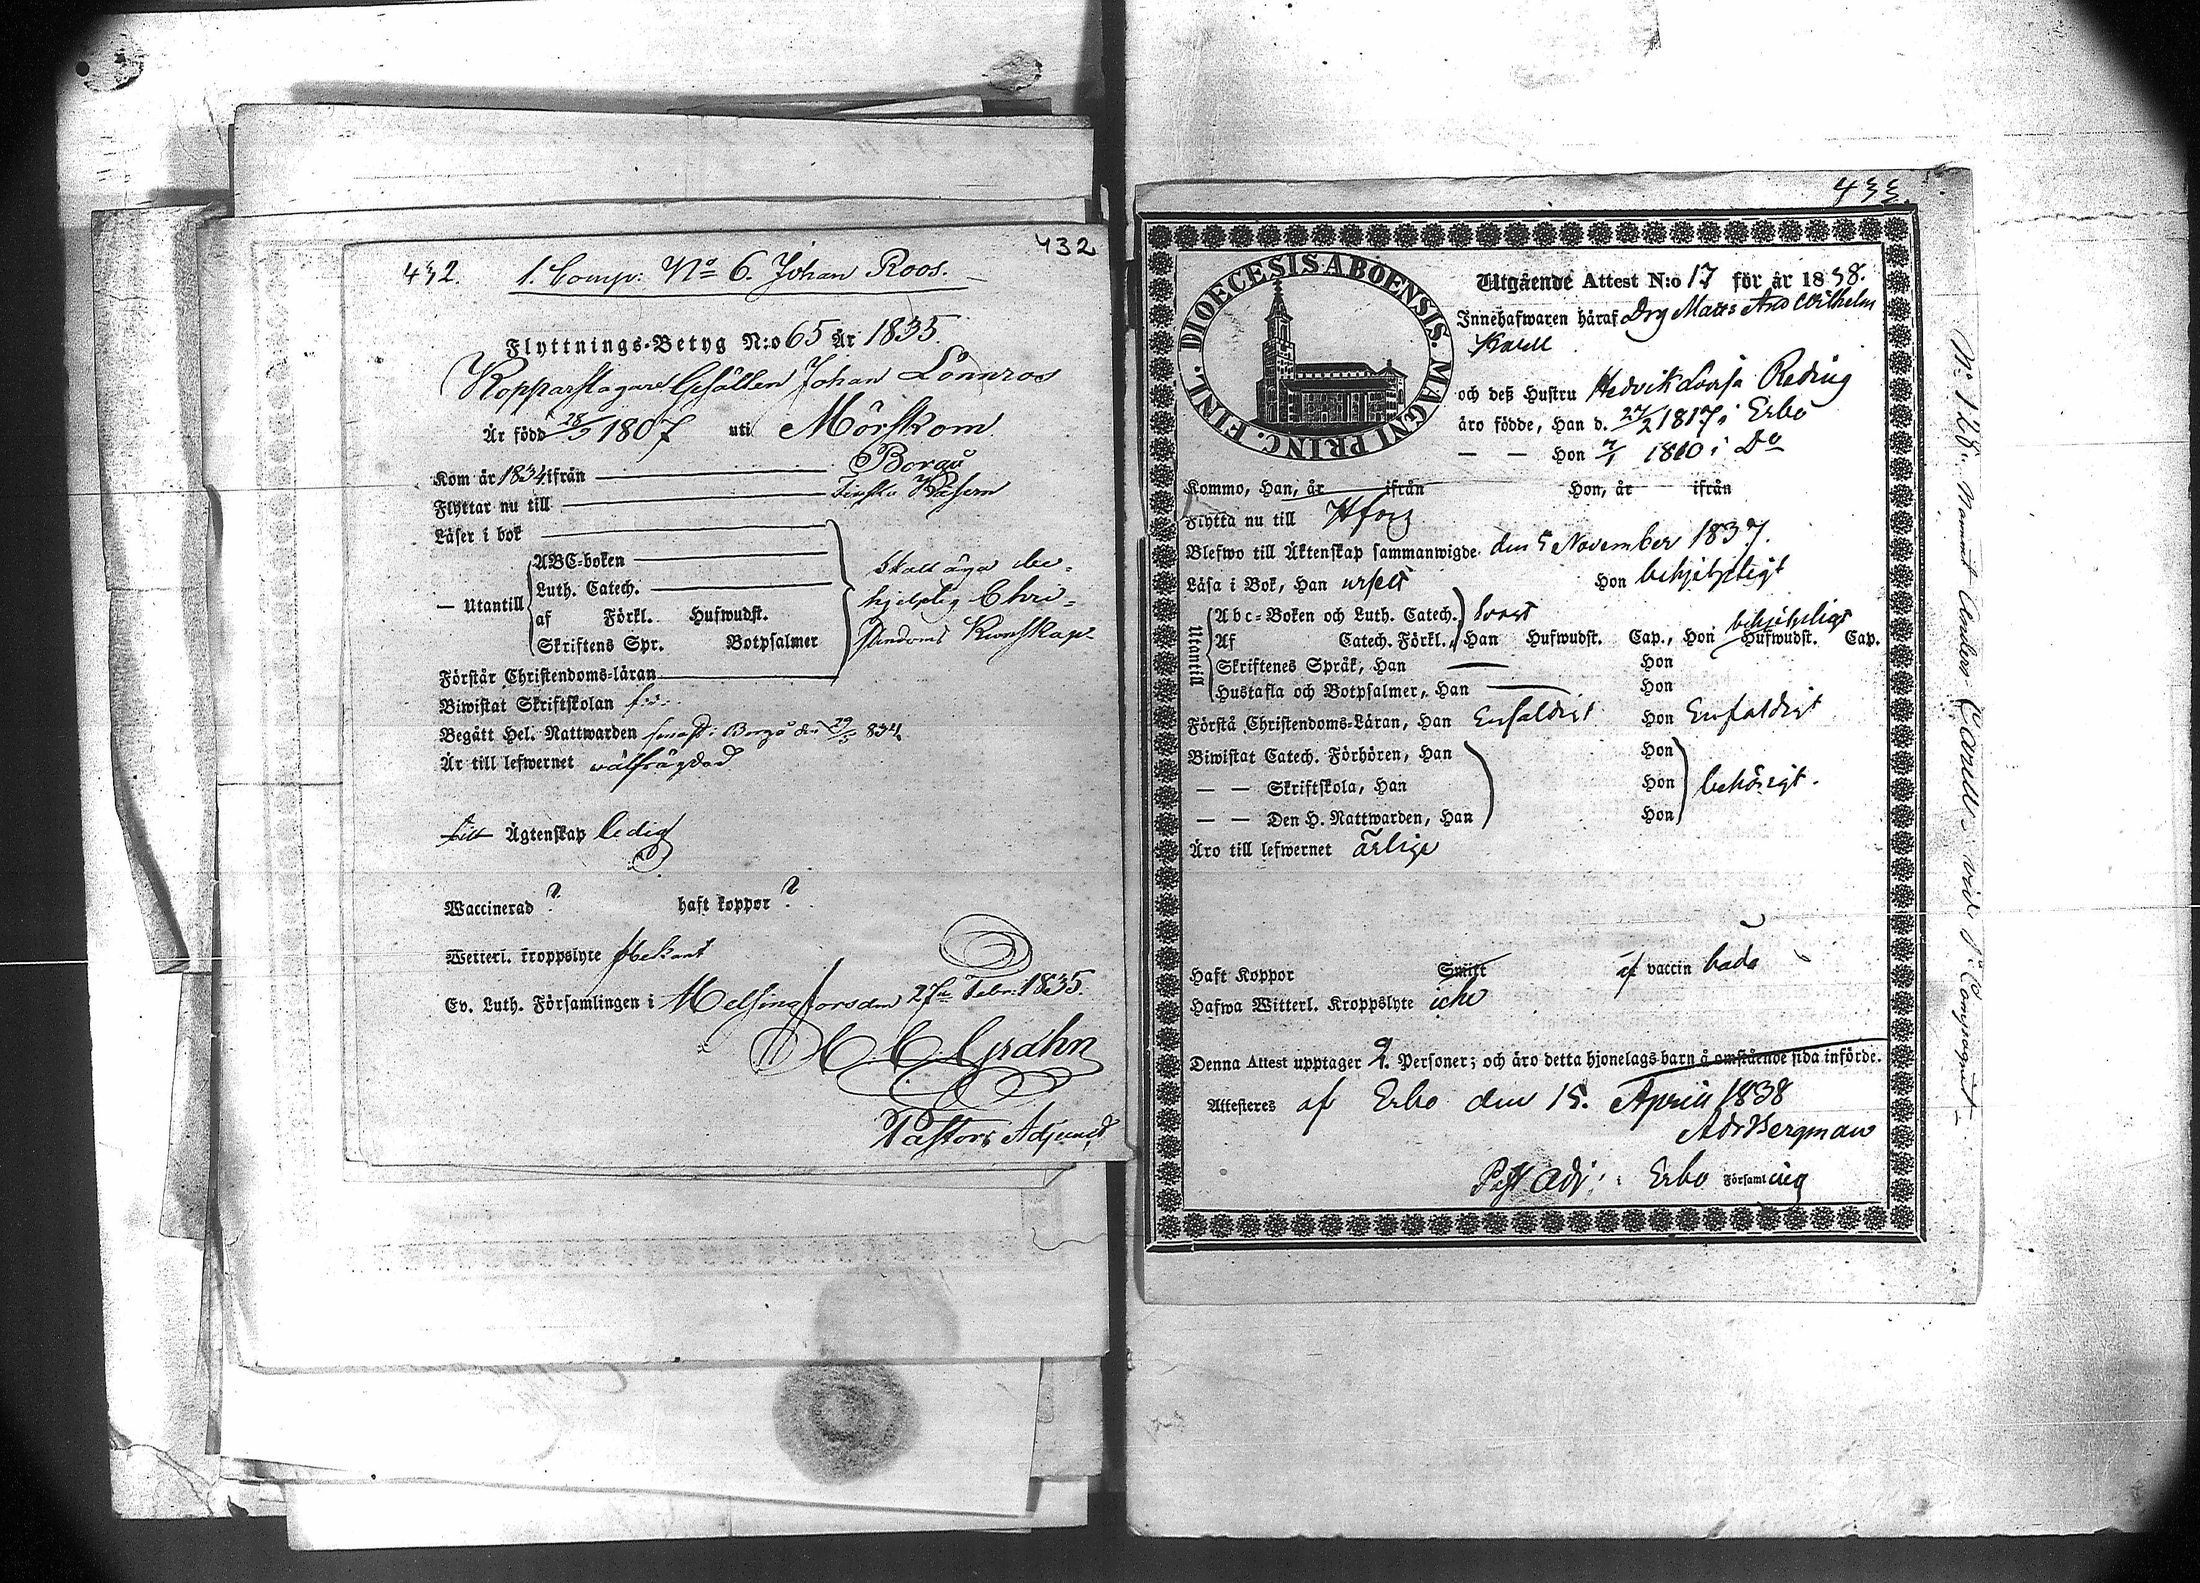 432
432. 1. Comp: No 6. Johan Roos.
Flyttnings-Betyg N:o 65 År 1835.
Kopparslagare Gesällen Johan Lönnros
Är född 28/5 1807 uti Mörskom
Kom år 1834 ifrån Borgå
Flyttar nu till Finska
Läser i bok
ABC-boken
Luth. Catech.
— Utantill
af Förkl. Hufwudst.
Skriftens Spr. Botpsalmer
skall äga be-
hjelplig Chri-
stendoms Kunskap
Förstår Christendoms-läran
Biwistat Skriftskolan
Begått Hel. Nattwarden senast i Borgå den 29/5 834
Är till lefwernet välfrägdad
till Ägtenskap ledig
Waccinerad ? haft koppor ?
Wetterl. kroppslyte obekant
Ev. Luth. Församlingen i Helsingfors den 27de Febr. 1835.
Grahn
Pastors Adjunct
433.
DIOECESIS ABOENSIS. MAGNI PRINC. FINL.
Utgående Attest N:o 17 för år 1838.
Innehafwaren häraf Drg Matts And Wilhelm
och deß Hustru Hedvik Lovisa Reding
äro födde, Han d. 27/2 1817 i Erbo
— — Hon 7/1 1810 i Do
Kommo, Han, år ifrån Hon, år ifrån
Flytta nu till Hfors
Blefwo till Äktenskap sammanwigde den 5 November 1837.
Läsa i Bok, Han urselt Hon behjelpligt
Utantill
Abc-Boken och Luth. Catech. svagt behjelpligt
Af Catech. Förkl. Han Hufwudst. Cap., Hon Hufwudst. Cap.
Skriftenes Språk, Han — Hon
Hustafla och Botpsalmer, Han — Hon
Förstå Christendoms-Läran, Han Enfaldigt Hon Enfaldigt
Biwistat Catech. Förhören, Han Hon
— — Skriftskola, Han Hon behörigt.
— — Den H. Nattwarden, Han Hon
Äro till lefwernet ärlige
Haft Koppor Smitt af vaccin båda
Hafwa Witterl. Kroppslyte icke
Denna Attest upptager 2. Personer; och äro detta hjonelags barn å omstående sida införde.
Attesteres af Erbo den 15. April 1838
Ad Bergman
Past adj: Erbo Församling
No 128. Mammut Anders Carell vid 1sta Compagniet